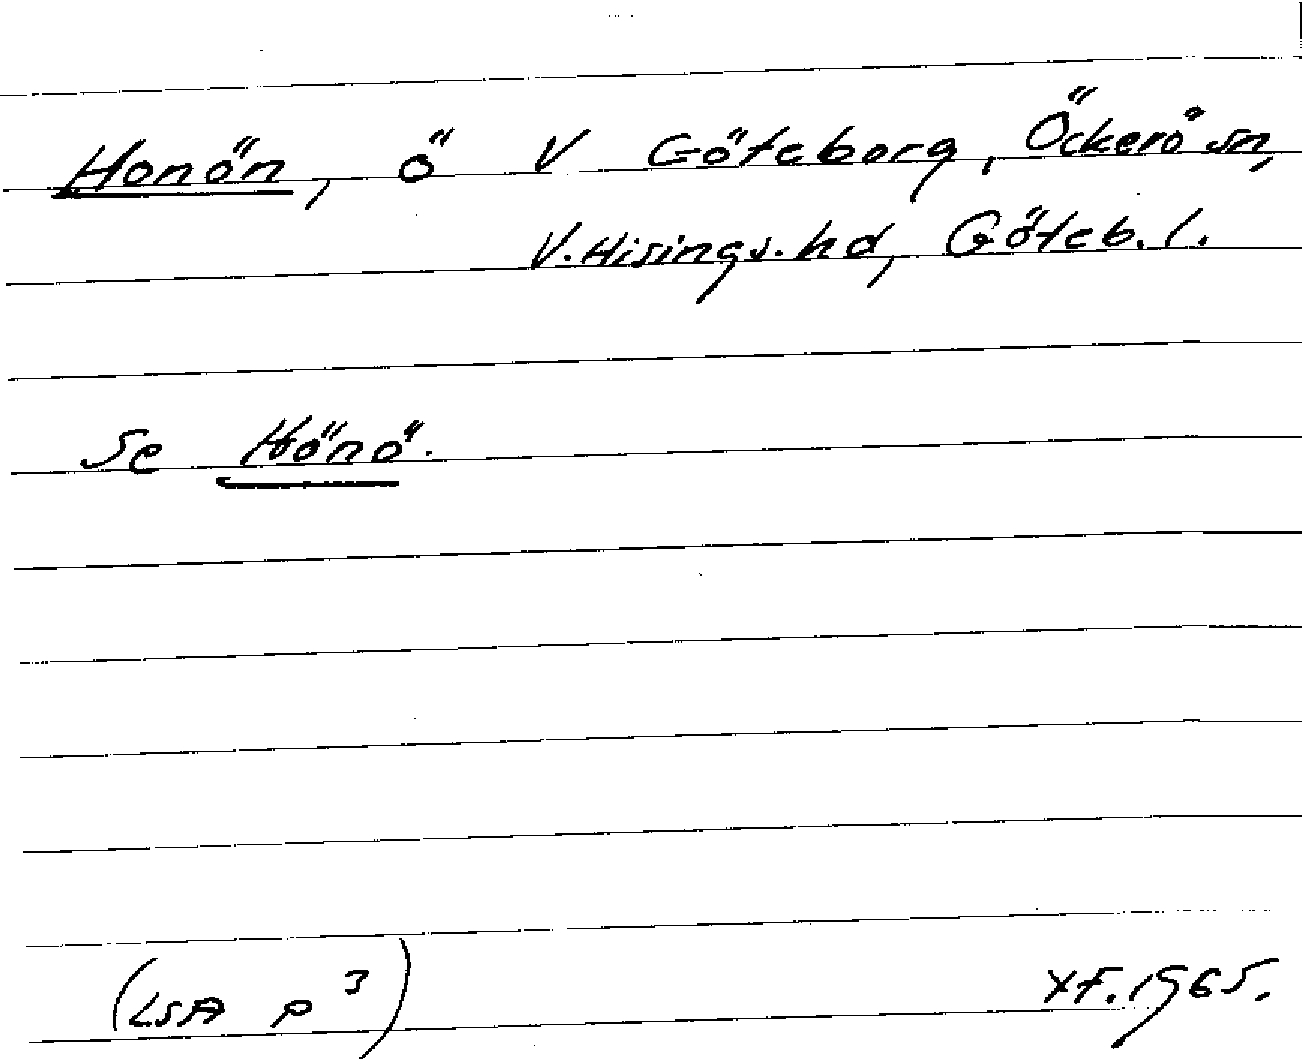 Honön, ö V Göteborg, Öckerö sn,
V. Hisings. hd, Göteb. l.
Se Hönö.
(LSA P 3) XF. 1965.